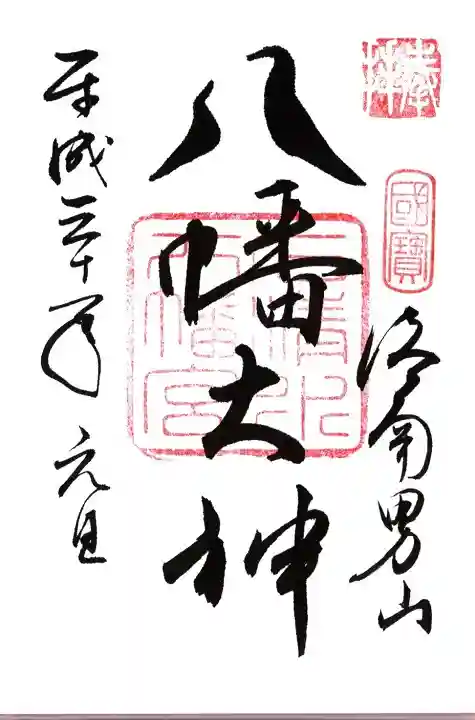 奉拝
國寶
洛南男山
八幡大神
石清水
八幡宮
平成三十年 元旦